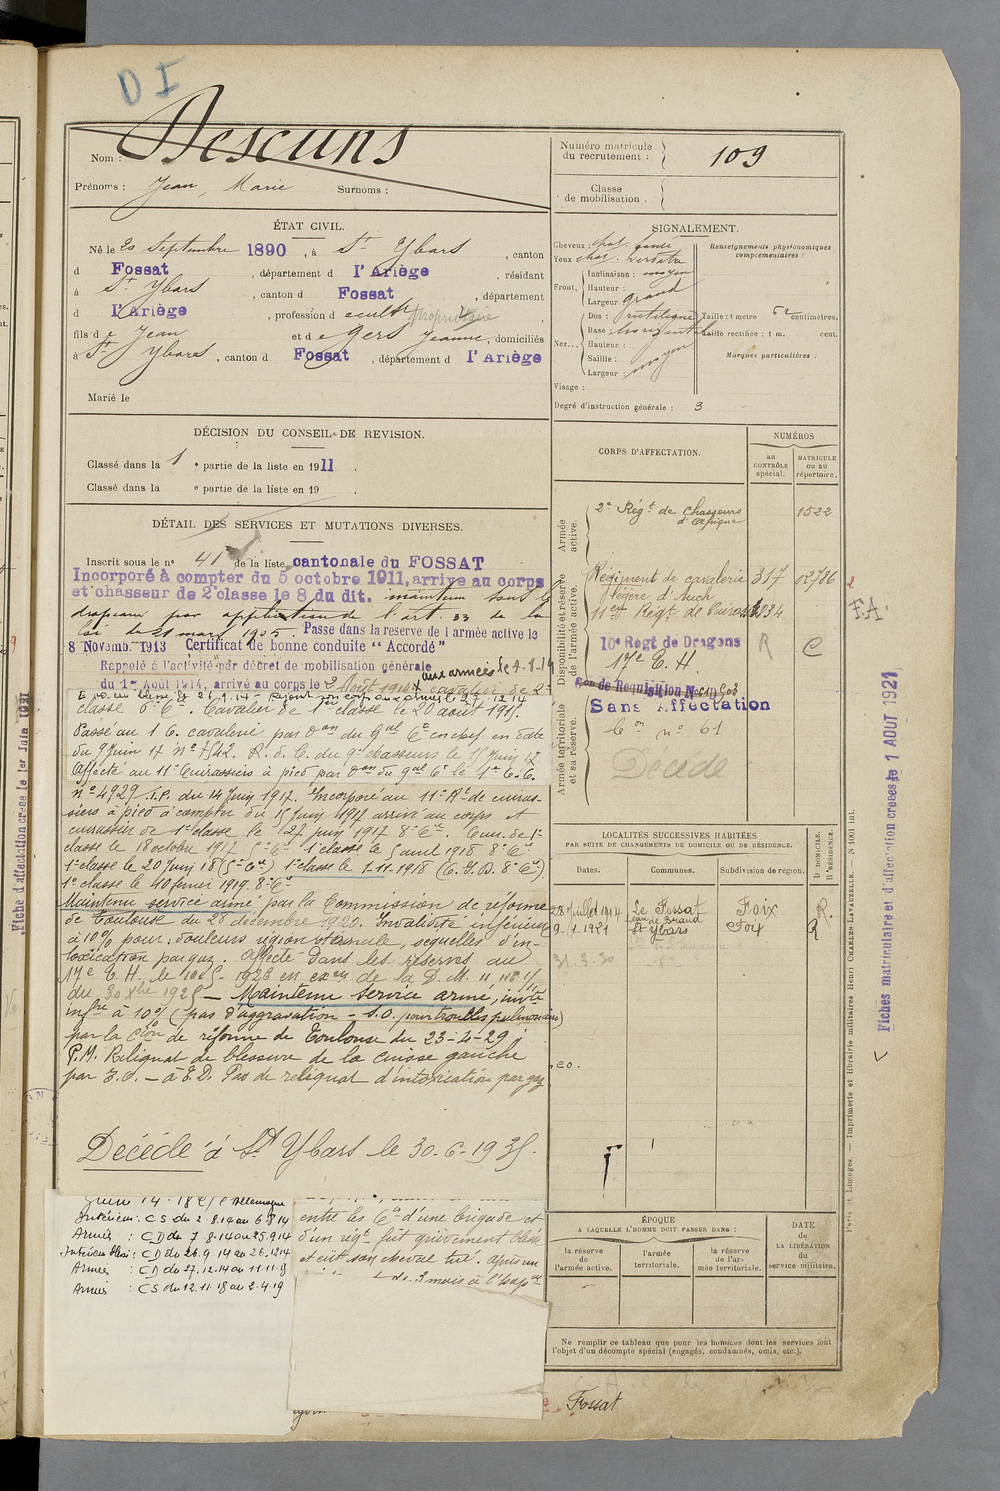 D I
Nom : Descuns
Prénoms : Jean, Marie Surnoms :
Numéro matricule du recrutement : 109
Classe de mobilisation .
ÉTAT CIVIL.
Né le 20 Septembre 1890 , à St Ybars , canton
d Fossat , département d l'Ariège , résidant
à St Ybars , canton d Fossat , département
d l'Ariège , profession d cultr propriétaire
fils d e Jean et de Gers Jeanne, domiciliés
à St Ybars , canton d Fossat , département d l'Ariège
Marié le
SIGNALEMENT.
Cheveux : chat. foncé
Yeux chat. verdâtre
Front, Inclinaison : moyen
Hauteur :
Largeur grand
Nez... Dos : rectiligne
Base : horizontal
Hauteur :
Saillie : moyen
Largeur :
Visage :
Degré d'instruction générale : 3
Renseignements physionomiques complémentaires :
Taille : 1 mètre 62 centimètres.
Taille rectifiée : 1 m. cent.
Marques particulières :
DÉCISION DU CONSEIL DE REVISION.
Classé dans la 1 e partie de la liste en 1911 .
Classé dans la e partie de la liste en 19 .
DÉTAIL DES SERVICES ET MUTATIONS DIVERSES.
Inscrit sous le n° 41 de la liste cantonale du FOSSAT
Incorporé à compter du 5 octobre 1911, arrive au corps
et chasseur de 2e classe le 8 du dit. maintenu sous les
drapeaux par application de l'art. 33 de la
loi du 21 mars 1905. Passe dans la reserve de l armée active le
8 Novemb. 1913 Certificat de bonne conduite "Accordé"
Rappelé à l'activité par décret de mobilisation générale aux armées le 4-8-14
du 1er Août 1914, arrivé au corps le 2 Août 1914 cavalier de 2e
classe 6e Cie. Cavalier de 1re classe le 20 août 1915.
Passé au 1 C. cavalerie par Don du gal Ct en chef en date
du 9 Juin 17 n° 7542. R. d. C. du 9e chasseurs le 15 Juin 17
Affecté au 11e Cuirassiers à pied par Don du gal Ct le 1er C.C.
n° 4929 I.P. du 14 Juin 1917. Incorporé au 11e Rt de cuiras-
siers à pied à compter du 15 Juin 1917 arrivé au corps et
cuirassier de 1e classe le 27 juin 1917 8e Cie. Cuir. de 1e
classe le 18 octobre 1917 5e Cie 1e classe le 5 avril 1918 8e Cie
1e classe le 20 Juin 18 (5e Cie) 1e classe le 1-11-1918 (C.I.D. 8e Cie).
1e classe le 10 fevrier 1919. 8e Cie
Maintenu service armé par la Commission de réforme
de Toulouse du 28 décembre 1920. Invalidité inférieure
à 10% pour : douleurs région sternale, sequelles d'in-
toxication par gaz. Affecté dans les réserves au
17e E. H. le 10-5-1926 en exon de la D. M. n
du 30 Xbre 1925 – Maintenu service armé, invté
infre à 10% (pas d'aggravation – S.O. pour troubles pulmonaires)
par la Cion de réforme de Toulouse du 23-4-29 ;
P.M. Reliquat de blessure de la cuisse gauche
par E.O. – à E.D. Pas de reliquat d'intoxication par gaz
Décédé à St Ybars le 30-6-1935.
l'Allemagne
Intérieur : CS du 2-8-14 au 6-8-14
Armées : CD du 7-8-14 au 25-9-14
Intérieur blessé : CD du 26.9.14 au 26.12 14
Armées : CD du 27.12.14 au 11-11-18
Armées : CS du 12.11.18 au 2-4-19
entre les Cies d'une brigade et
d'un régt fut grièvement blessé
et eut son cheval tué. après un
3 mois à l'hôp
CORPS D'AFFECTATION.
NUMÉROS
au CONTRÔLE spécial.
MATRICULE ou au répertoire.
Armée active.
2e Régt de Chasseurs d'Afrique 1522
Disponibilité et réserve de l'armée active.
Régiment de cavalerie légère d'Auch 317 02786
11e Régt de Cuirassiers
10e Regt de Dragons R C
17e E. H
Sans Affectation
Armée territoriale et sa réserve.
n° 61
Décédé
LOCALITÉS SUCCESSIVES HABITÉES
PAR SUITE DE CHANGEMENTS DE DOMICILE OU DE RÉSIDENCE.
Dates. Communes. Subdivision de région. D DOMICILE. R RÉSIDENCE.
28 Juillet 1914 Le Fossat Foix R.
9-1-1921 St Ybars Foix R
31-3-30
ÉPOQUE
A LAQUELLE L'HOMME DOIT PASSER DANS :
la réserve de l'armée active. l'armée territoriale. la réserve de l'armée territoriale.
DATE de LA LIBÉRATION du service militaire.
Ne remplir ce tableau que pour les hommes dont les services font
l'objet d'un décompte spécial (engagés, condamnés, omis, etc.).
Fossat
Paris et Limoges. — Imprimerie et librairie militaires Henri CHARLES-LAVAUZELLE. — N° 1001 int.
Fiches matriculaire et d'affectation créées le 1 AOUT 1921
Fiche d'affectation créée le 1er Juin 1921
F.A.